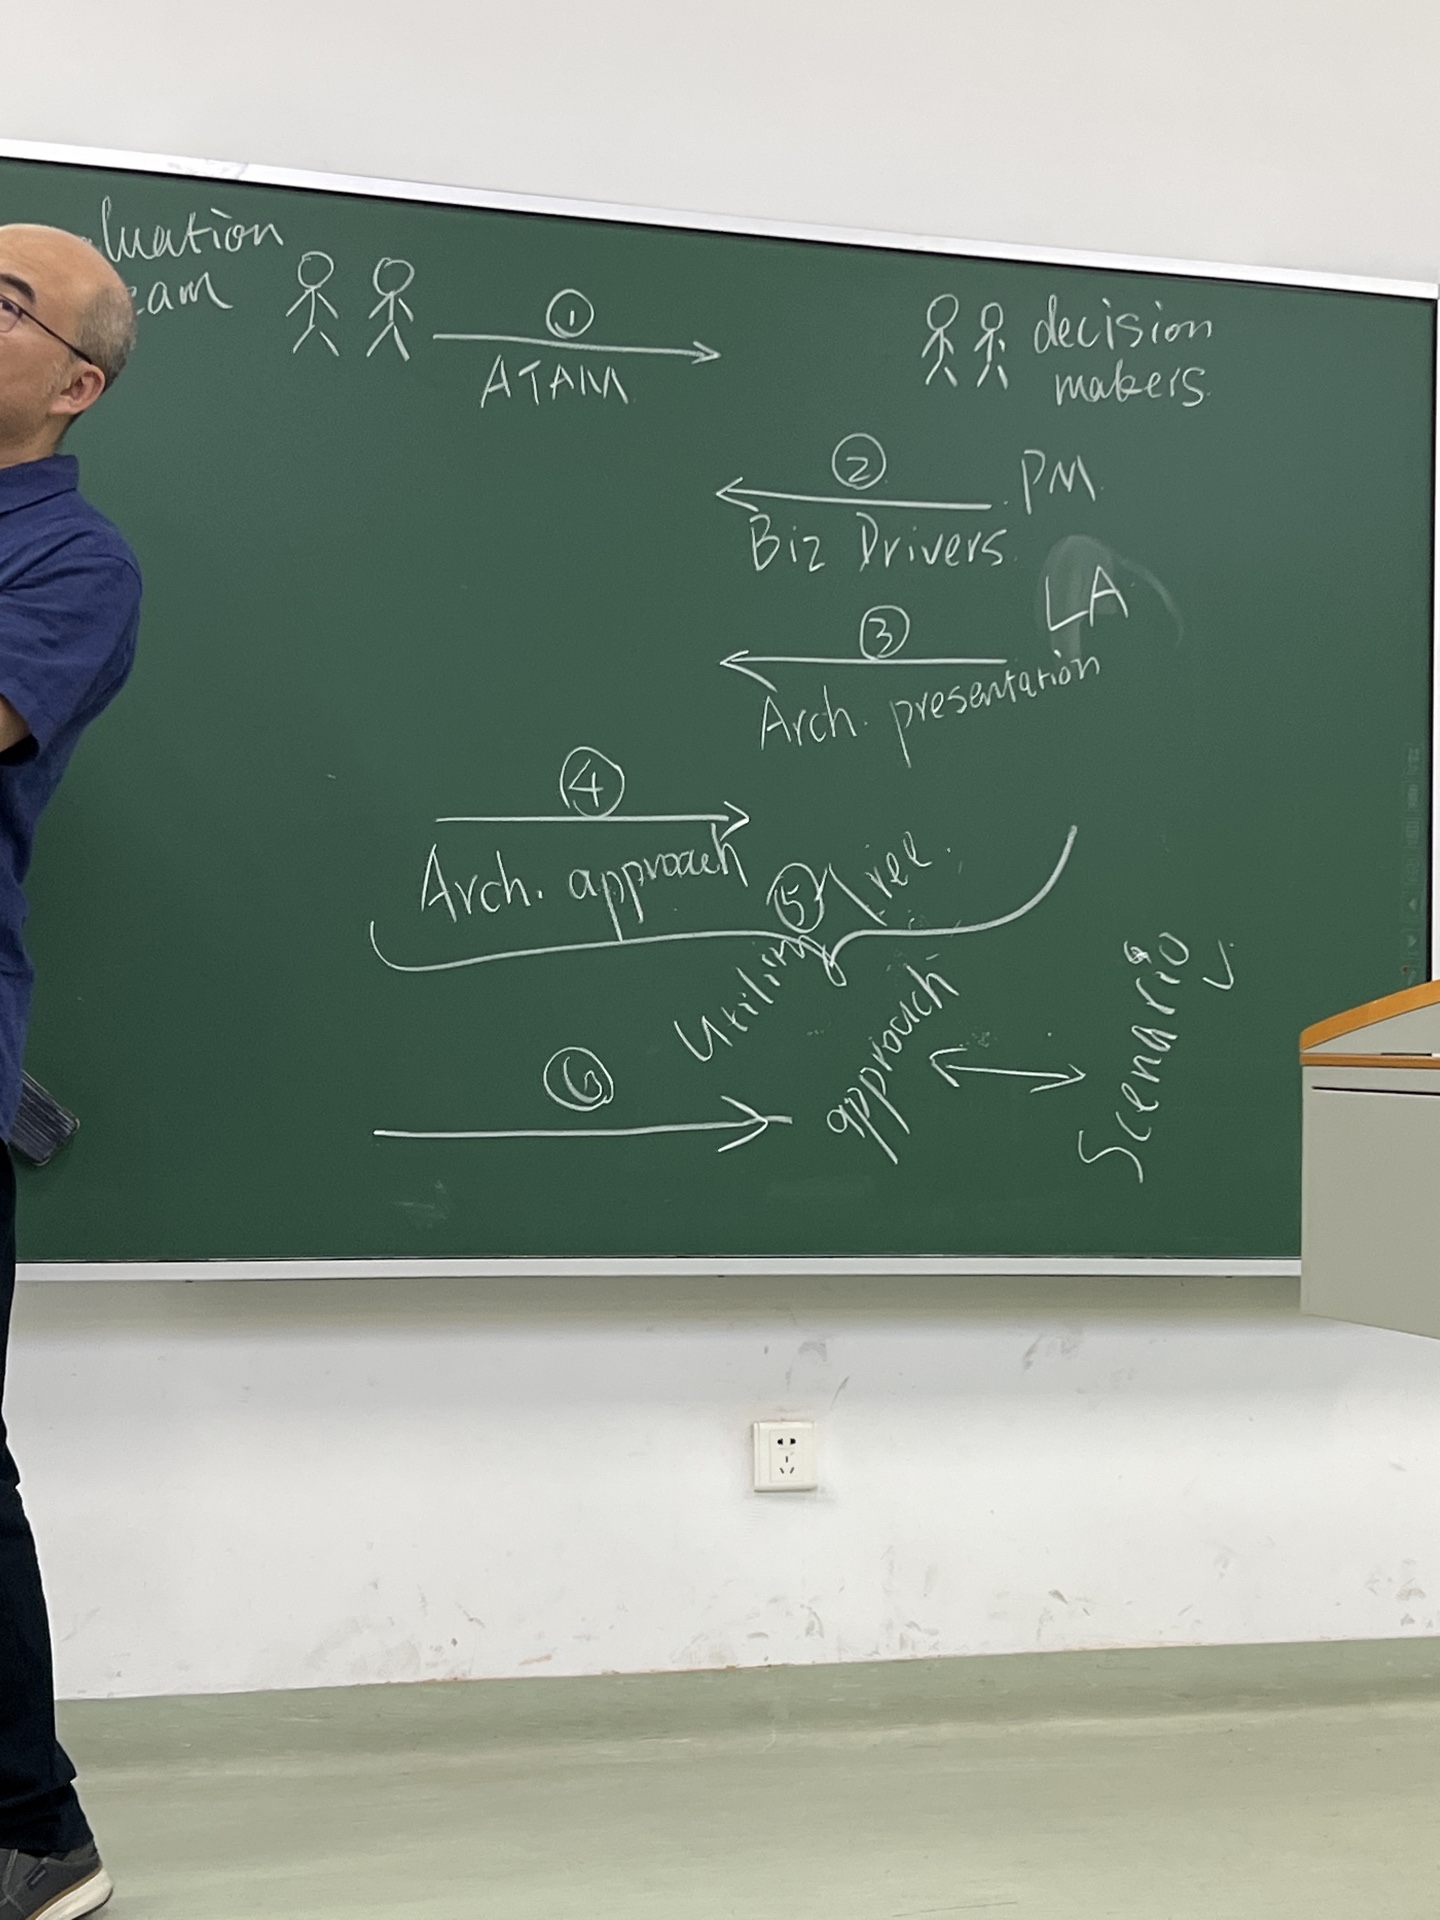 luation
eam
①
ATAM
decision
makers
②
PM
Biz Drivers
LA
③
Arch. presentation
④
Arch. approach
⑤
Utility Tree
⑥
approach
Scenario